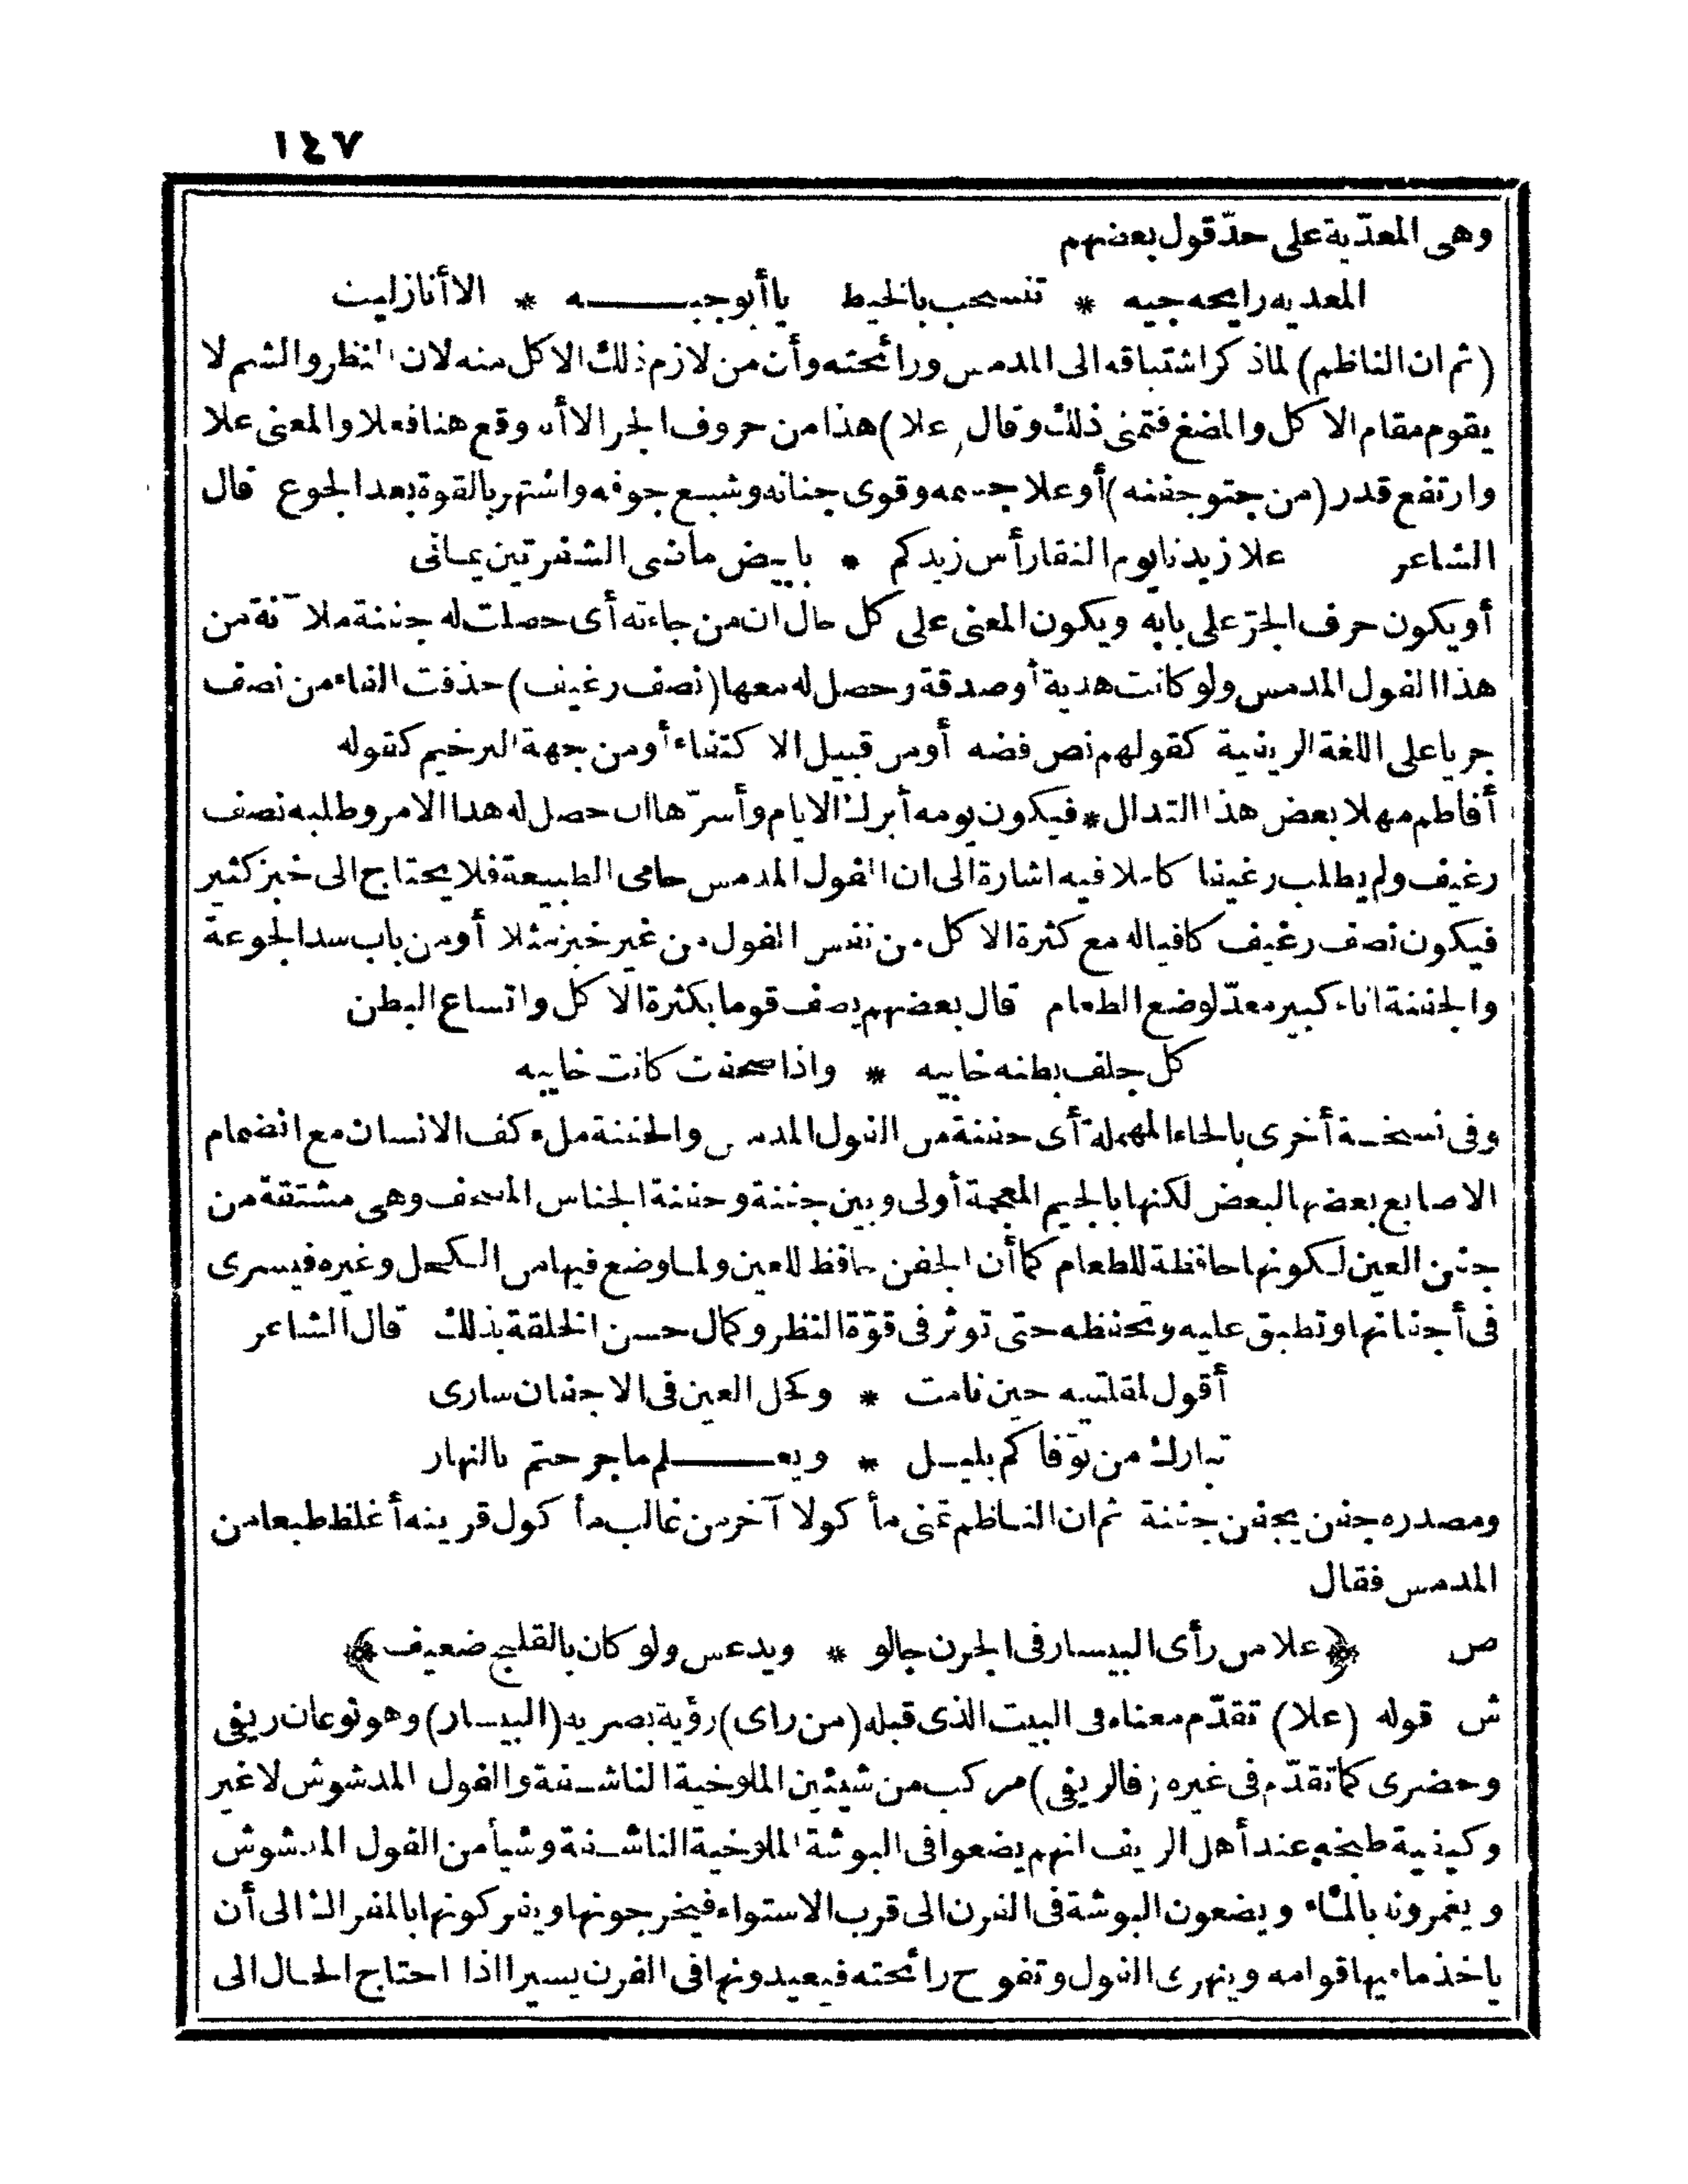 ١٤٧
وهى المعدّية على حدّ قول بعضهم
المعديه رايحه جيه * تنسحب بالخيط يا أبو جبه * الا أنا زليت
(ثم ان الناظم) لما ذكر اشتياقه الى المدمس ورائحته وأن من لازم ذلك الاكل منه لان النظر والشم لا
يقوم مقام الاكل والمضغ فتمنى ذلك وقال (علا) هذا من حروف الجر الا أنه وقع هنا فعلا والمعنى علا
وارتفع قدر (من جتو جفنه) أو علا جسمه وقوى جنانه وشبع جوفه واشتهر بالقوة بعد الجوع قال
الشاعر علا زيدنا يوم النقا رأس زيدكم * بابيض ماضى الشفرتين يمانى
أو يكون حرف الجرّ على بابه ويكون المعنى على كل حال ان من جاءته أى حصلت له جفنة ملآنة من
هذا الفول المدمس ولو كانت هدية أو صدقة وحصل له معها (نصف رغيف) حذفت الفاء من نصف
جريا على اللغة الريفية كقولهم نص فضه أو من قبيل الاكتفاء أو من جهة الترخيم كقوله
أفاطم مهلا بعض هذا التدلل * فيكون يومه أبرك الايام وأسرّها ان حصل له هذا الامر وطلبه نصف
رغيف ولم يطلب رغيفا كاملا فيه اشارة الى ان الفول المدمس حامى الطبيعة فلا يحتاج الى خبز كثير
فيكون نصف رغيف كافيا له مع كثرة الاكل من نفس الفول من غير خبز مثلا أو من باب سد الجوعة
والجفنة اناء كبير معدّ لوضع الطعام قال بعضهم يصف قوما بكثرة الاكل واتساع البطن
كل جلف بطنه خابيه * واذا صحفت كانت خايبه
وفى نسخة أخرى بالحاء المهملة أى حفنة من الفول المدمس والحفنة ملء كف الانسان مع انضمام
الاصابع بعضها لبعض لكنها بالجيم المعجمة أولى وبين جفنة وحفنة الجناس المصحف وهى مشتقة من
جفن العين لكونها حافظة للطعام كما أن الجفن حافظ للعين ولما وضع فيها من الكحل وغيره فيسرى
فى أجفانها وتطبق عليه وتحفظه حتى توثر فى قوّة النظر وكمال حسن الخلقة بذلك قال الشاعر
أقول لمقلتيه حين نامت * وكحل العين فى الاجفان سارى
تبارك من توفاكم بليل * ويعلم ما جرحتم بالنهار
ومصدره جفن يجفن جفنة ثم ان الناظم تمنى مأكولا آخر من غالب مأكول قرينه أغلظ طبعا من
المدمس فقال
ص ﴿علا من رأى البيسار فى الجرن جالو * ويدعس ولو كان بالقليج ضعيف﴾
ش قوله (علا) تقدّم معناه فى البيت الذى قبله (من راى) رؤية بصريه (البيسار) وهو نوعان ريفى
وحضرى كما تقدّم فى غيره (فالريفى) مركب من شيئين الملوخية الناشفة والفول المدشوش لا غير
وكيفية طبخه عند أهل الريف انهم يضعوا فى البوشة الملوخية الناشفة وشيأ من الفول المدشوش
ويغمرونه بالماء ويضعون البوشة فى الفرن الى قرب الاستواء فيخرجونها ويفركونها بالمفراك الى أن
ياخذ ما فيها قوامه وينهرى الفول وتفوح رائحته فيعيدونها فى الفرن يسيرا اذا احتاج الحال الى